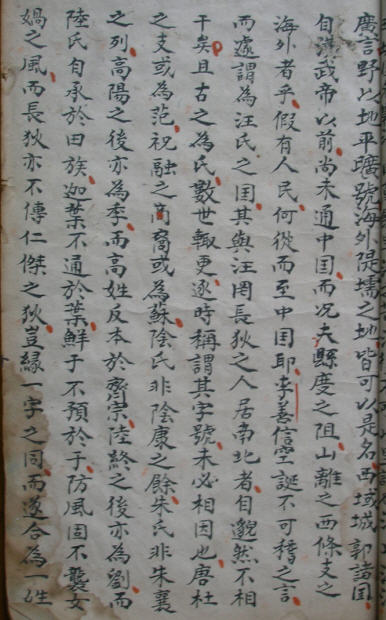 廣言野以地平曠號海外隄壖之地皆可以是名西域城郭諸国
自漢武帝以前尚未通中国而况夫縣度之阻山離之西條支之
海外者乎假有人民何從而至中国耶李善信空誕不可稽之言
而處謂為汪氏之国其與汪罔長狄之人居南北者自邈然不相
干矣且古之為氏數世輙更逐時稱謂其字號未必相因也唐杜
之支或為范祝融之裔或為蘇陰氏非陰康之餘朱氏非朱襄
之列高陽之後亦為李而高姓反本於齊宗陸終之後亦為劉而
陸氏自承於田族迦葉不通於葉鮮于不預於于防風固不襲女
媧之風而長狄亦不傳仁傑之狄豈緣一字之同而遂合為一姓